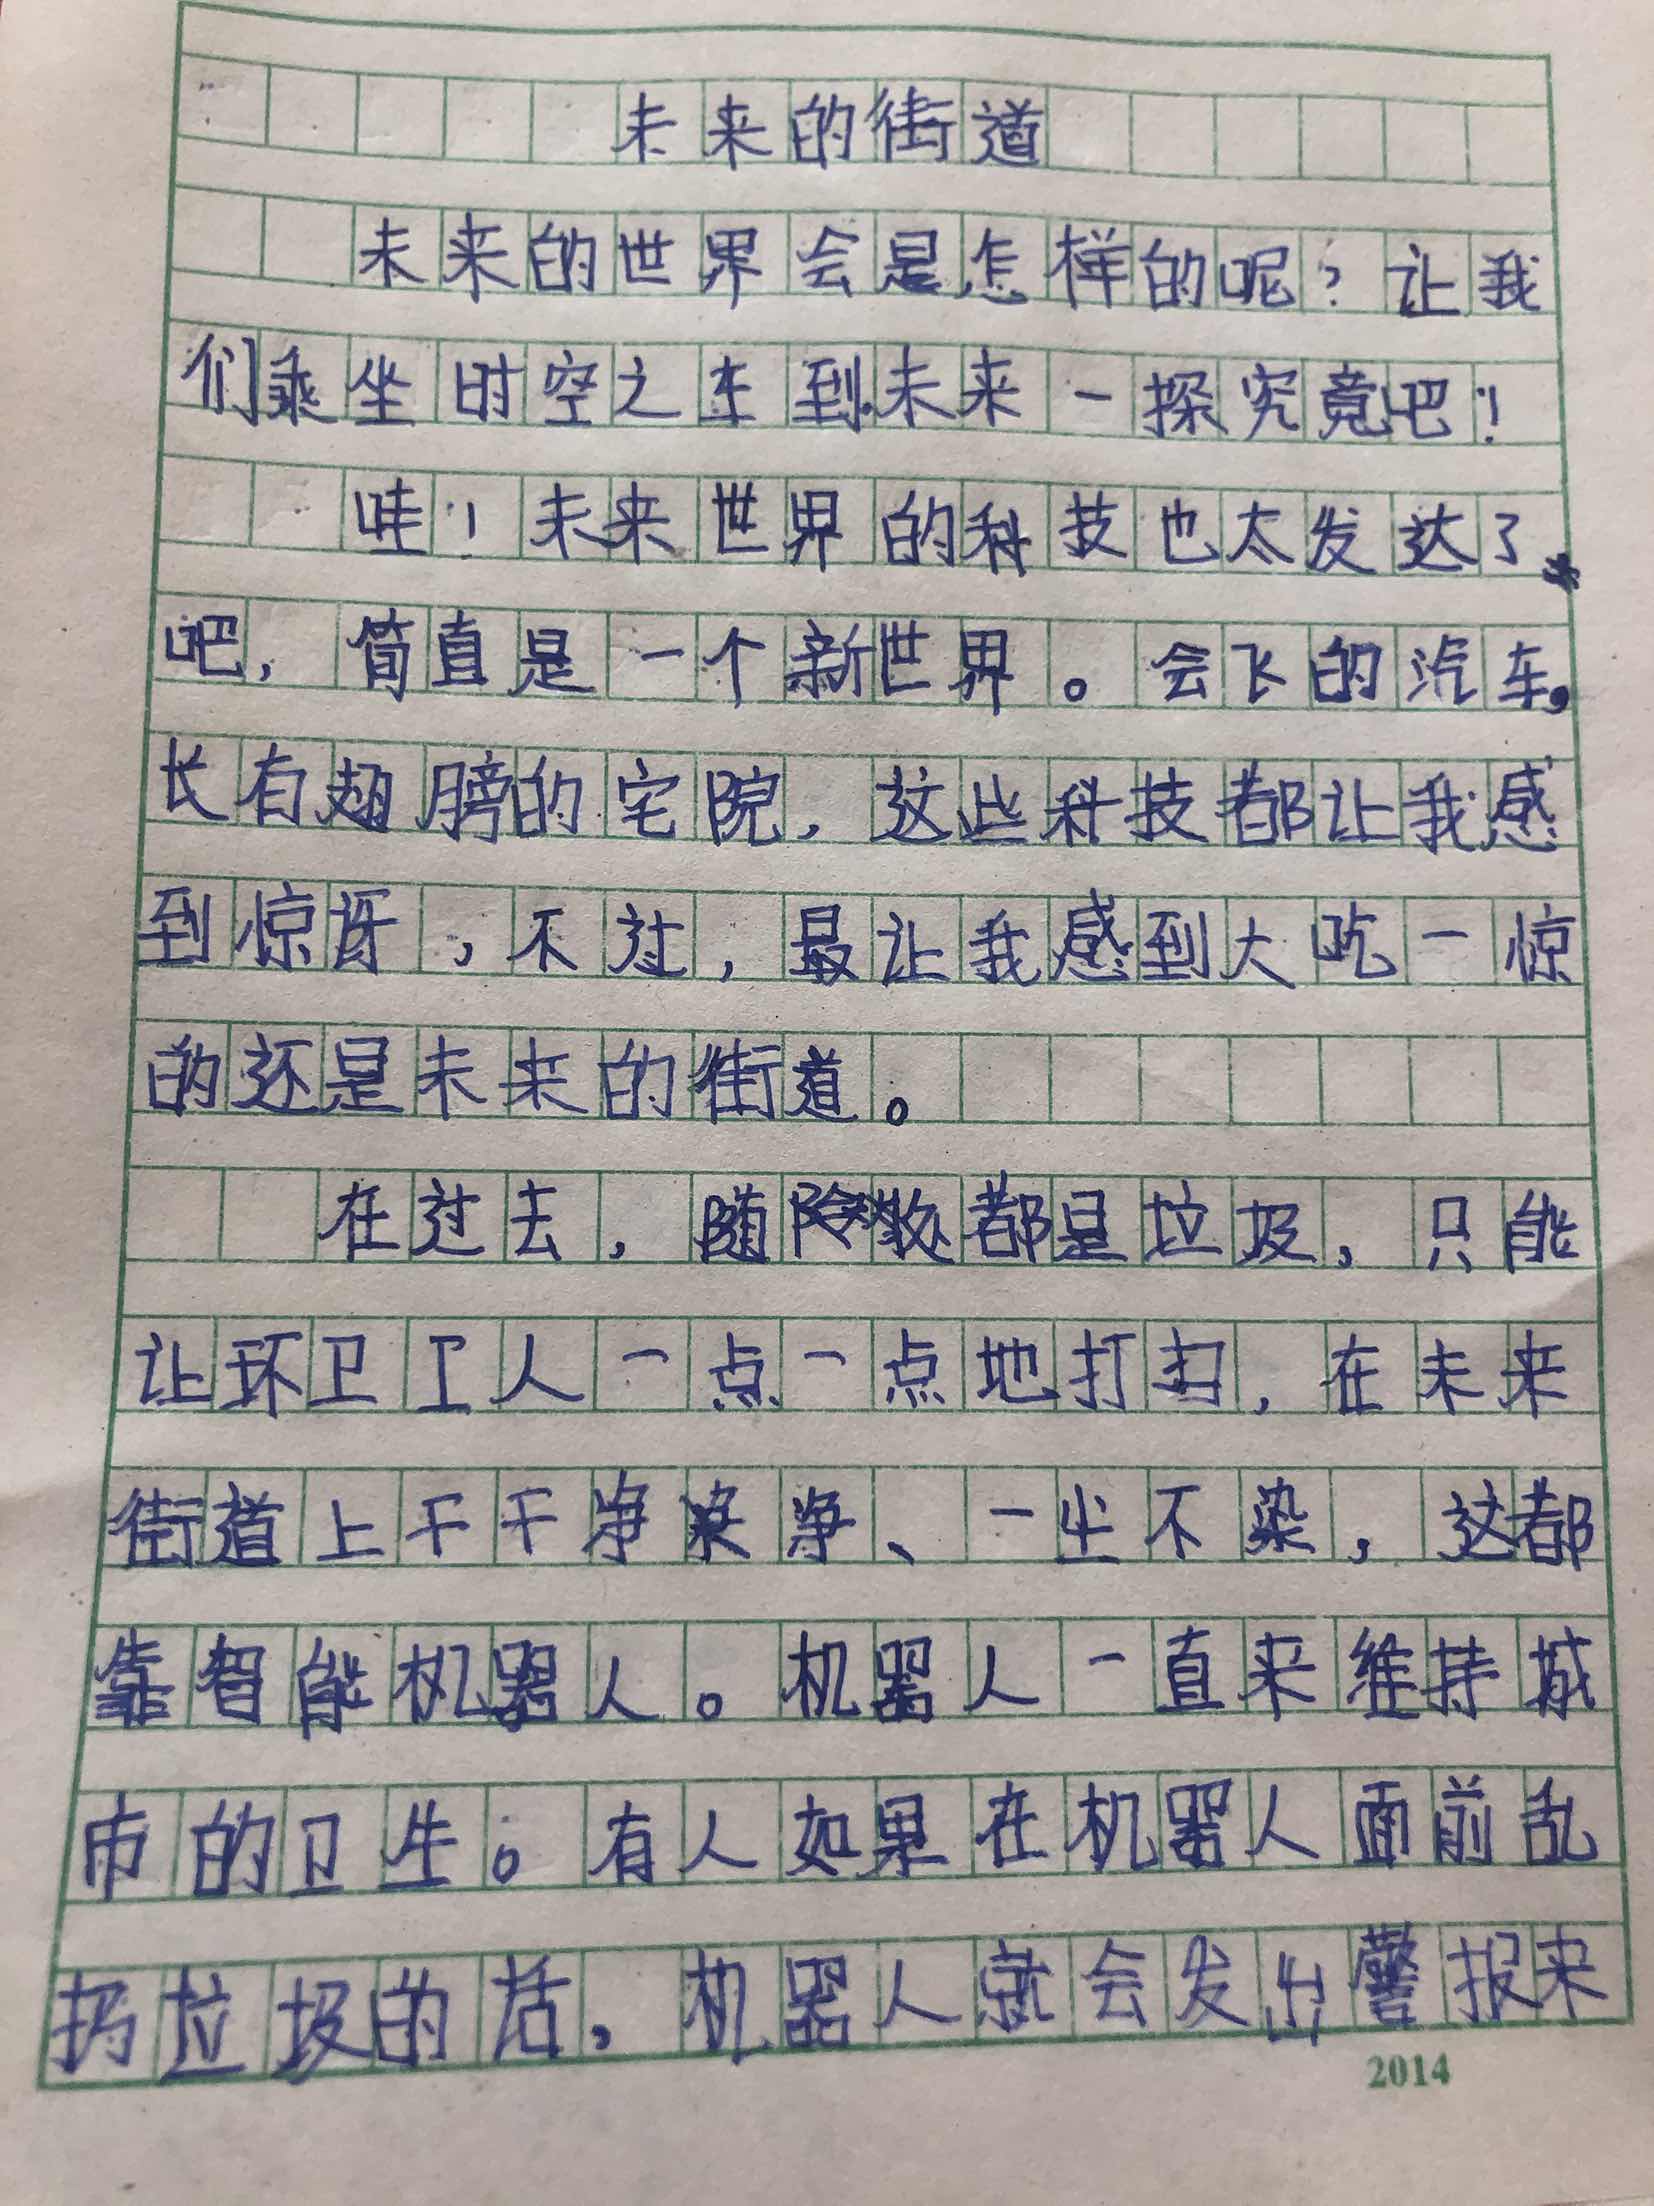 未来的街道
未来的世界会是怎样的呢？让我
们乘坐时空之车到未来一探究竟吧！
哇！未来世界的科技也太发达了
吧，简直是一个新世界。会飞的汽车，
长有翅膀的宅院，这些科技都让我感
到惊讶，不过，最让我感到大吃一惊
的还是未来的街道。
在过去，随处都是垃圾，只能
让环卫工人一点一点地打扫，在未来
街道上干干净净、一尘不染，这都
靠智能机器人。机器人一直来维持城
市的卫生。有人如果在机器人面前乱
扔垃圾的话，机器人就会发出警报来
2014